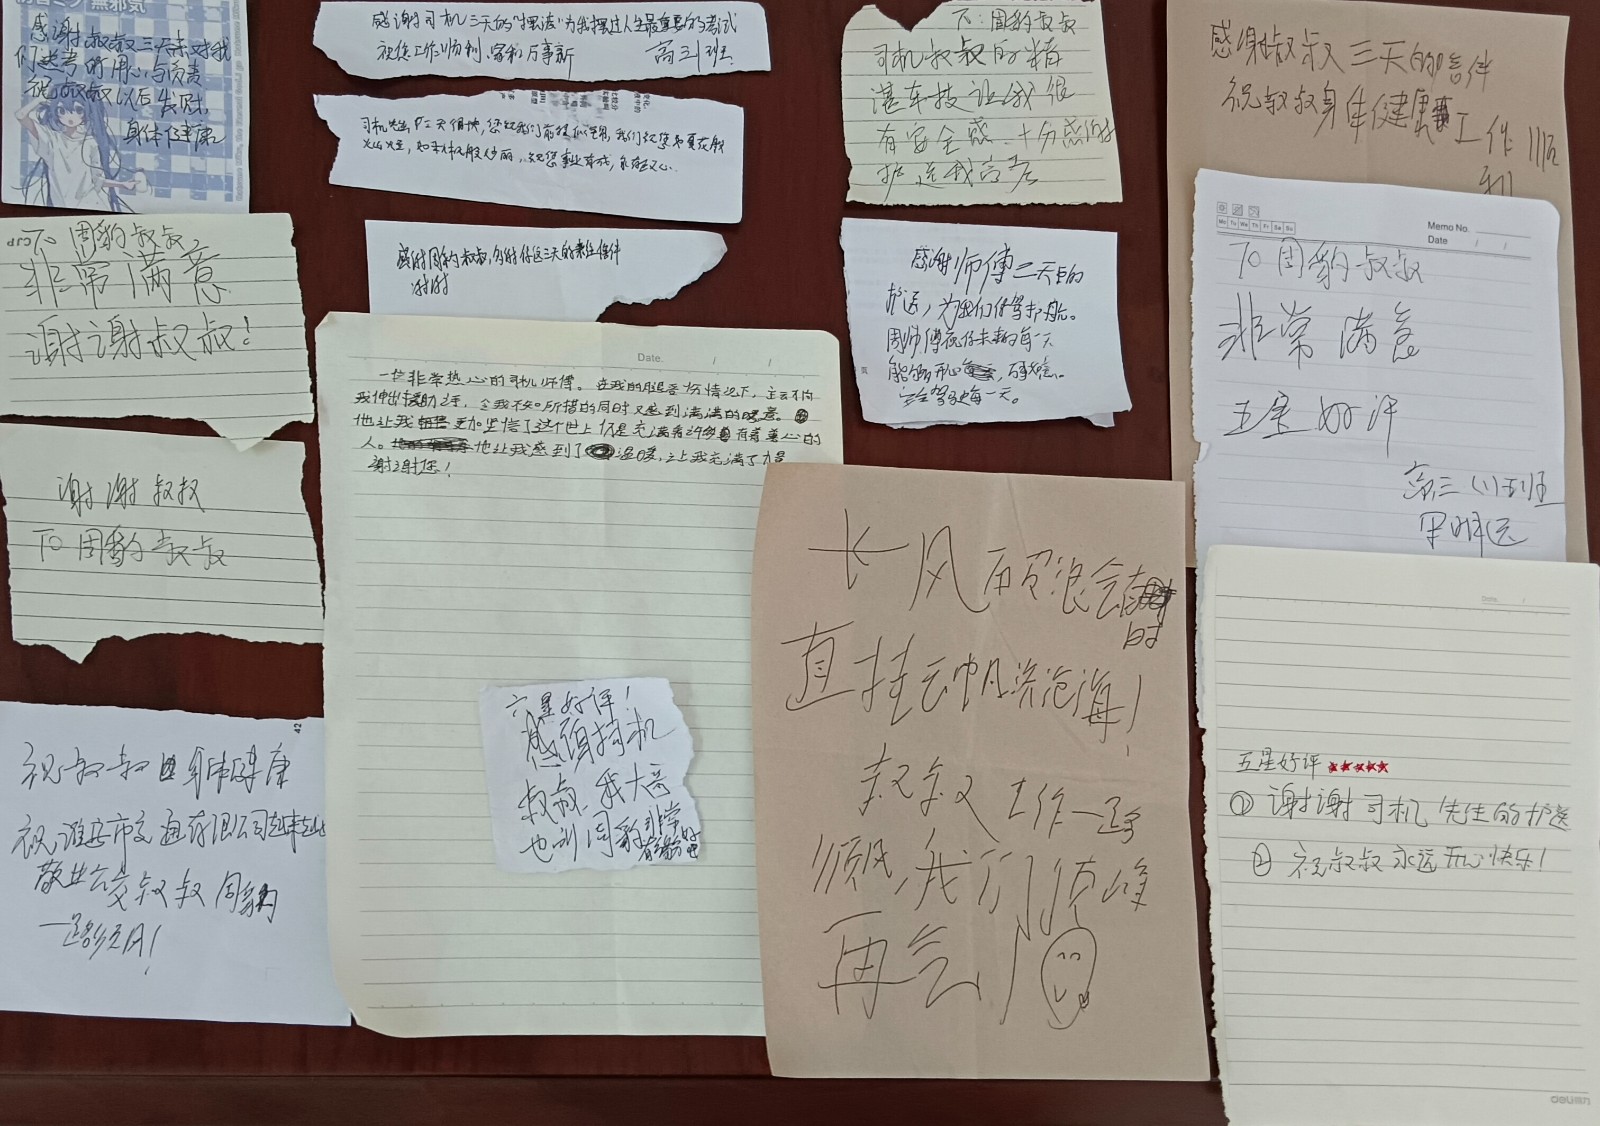 無邪気
感谢叔叔三天来对我
们送考的用心与负责
祝叔叔以后发财,
身体健康
感谢司机三天的"摆渡"为我摆过人生最重要的考试
祝您工作顺利,家和万事新
高三1班
下:周豹叔叔
司机叔叔的精
湛车技让我很
有安全感,十分感谢
护送我高考
感谢叔叔三天的陪伴
祝叔叔身体健康 工作顺
利
To 周豹叔叔
非常满意
谢谢叔叔!
感谢周豹叔叔,
谢谢
感谢师傅三天的
护送,为我们保驾护航。
周师傅祝你未来的每一天
能够开心,
每一天。
Memo No.
Date / /
Mo Tu We Th Fr Sa Su
To 周豹叔叔
非常满意
五星好评
高三(1)班
Date. / /
一位非常热心的司机师傅。在我的腿受伤情况下,主动向
我伸出援助之手,令我不知所措的同时又感到满满的暖意。
他让我更加坚信了这个世上仍是充满着许多有着善心的
人。他让我感到了温暖,让我充满了力量
谢谢您!
谢谢叔叔
To 周豹叔叔
长风破浪会有时
直挂云帆济沧海!
叔叔工作一路
顺风,我们顶峰
再会!
六星好评!
感谢司机
叔叔,我大哥
也叫周豹非常
有缘分
42
祝叔叔身体健康
祝淮安市交通有限公司越来越
敬业 叔叔 周豹
一路顺风!
Date. /
五星好评 ★★★★★
① 谢谢司机先生的护送
② 祝叔叔永远开心快乐!
deli